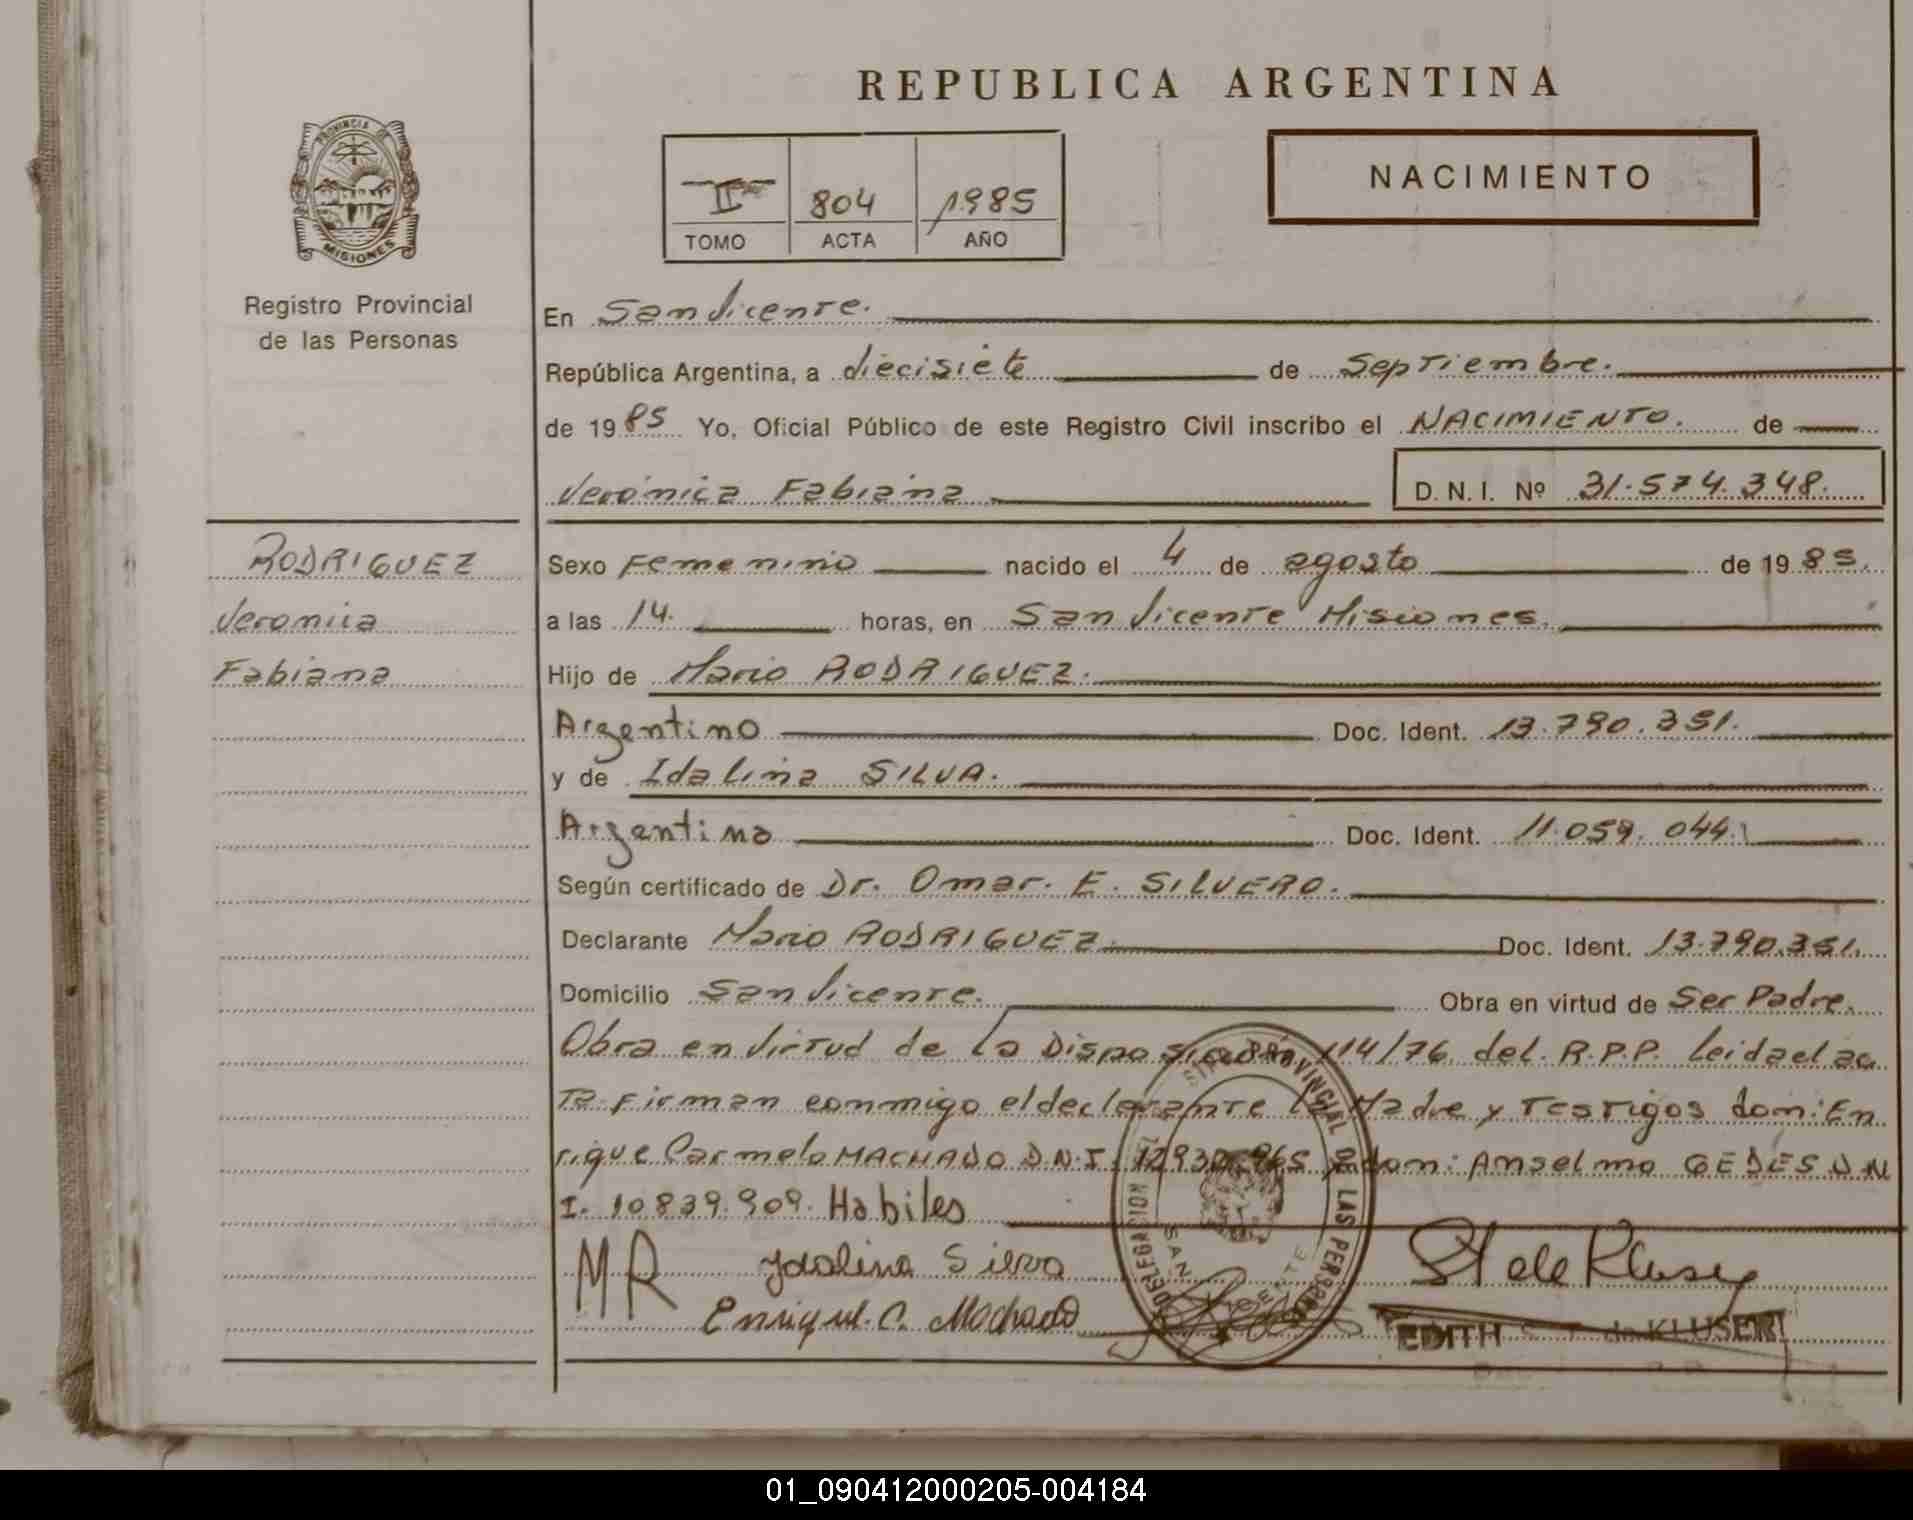 REPUBLICA ARGENTINA
PROVINCIA DE
MISIONES
Registro Provincial
de las Personas
II 804 1985
TOMO ACTA AÑO
NACIMIENTO
En San Vicente.
República Argentina, a diecisiete de Septiembre.
de 1985 Yo, Oficial Público de este Registro Civil inscribo el NACIMIENTO. de
Verónica Fabiana D. N. I. Nº 31.574.348.
RODRIGUEZ
Veronica
Fabiana
Sexo Femenino nacido el 4 de agosto de 1985.
a las 14. horas, en San Vicente Misiones.
Hijo de Mario RODRIGUEZ.
Argentino Doc. Ident. 13.790.351.
y de Idalina SILVA.
Argentina Doc. Ident. 11.059.044.
Según certificado de Dr. Omar. E. SILVERO.
Declarante Mario RODRIGUEZ. Doc. Ident. 13.790.351.
Domicilio San Vicente. Obra en virtud de Ser Padre.
Obra en Virtud de la Disposición 114/76 del R.P.P. Leida el ac
Ta firman conmigo el declarante la Madre y Testigos don: En
rique Carmelo MACHADO D.N.I. 12930965 y don: Anselmo GEDES D.N
I. 10839.909. Habiles
MR Idalina Silva St de Kluser
Enrique. C. Machado
EDITH de KLUSER
PROVINCIAL DE LAS PERSONAS
DELEGACION
SAN VICENTE
01_090412000205-004184